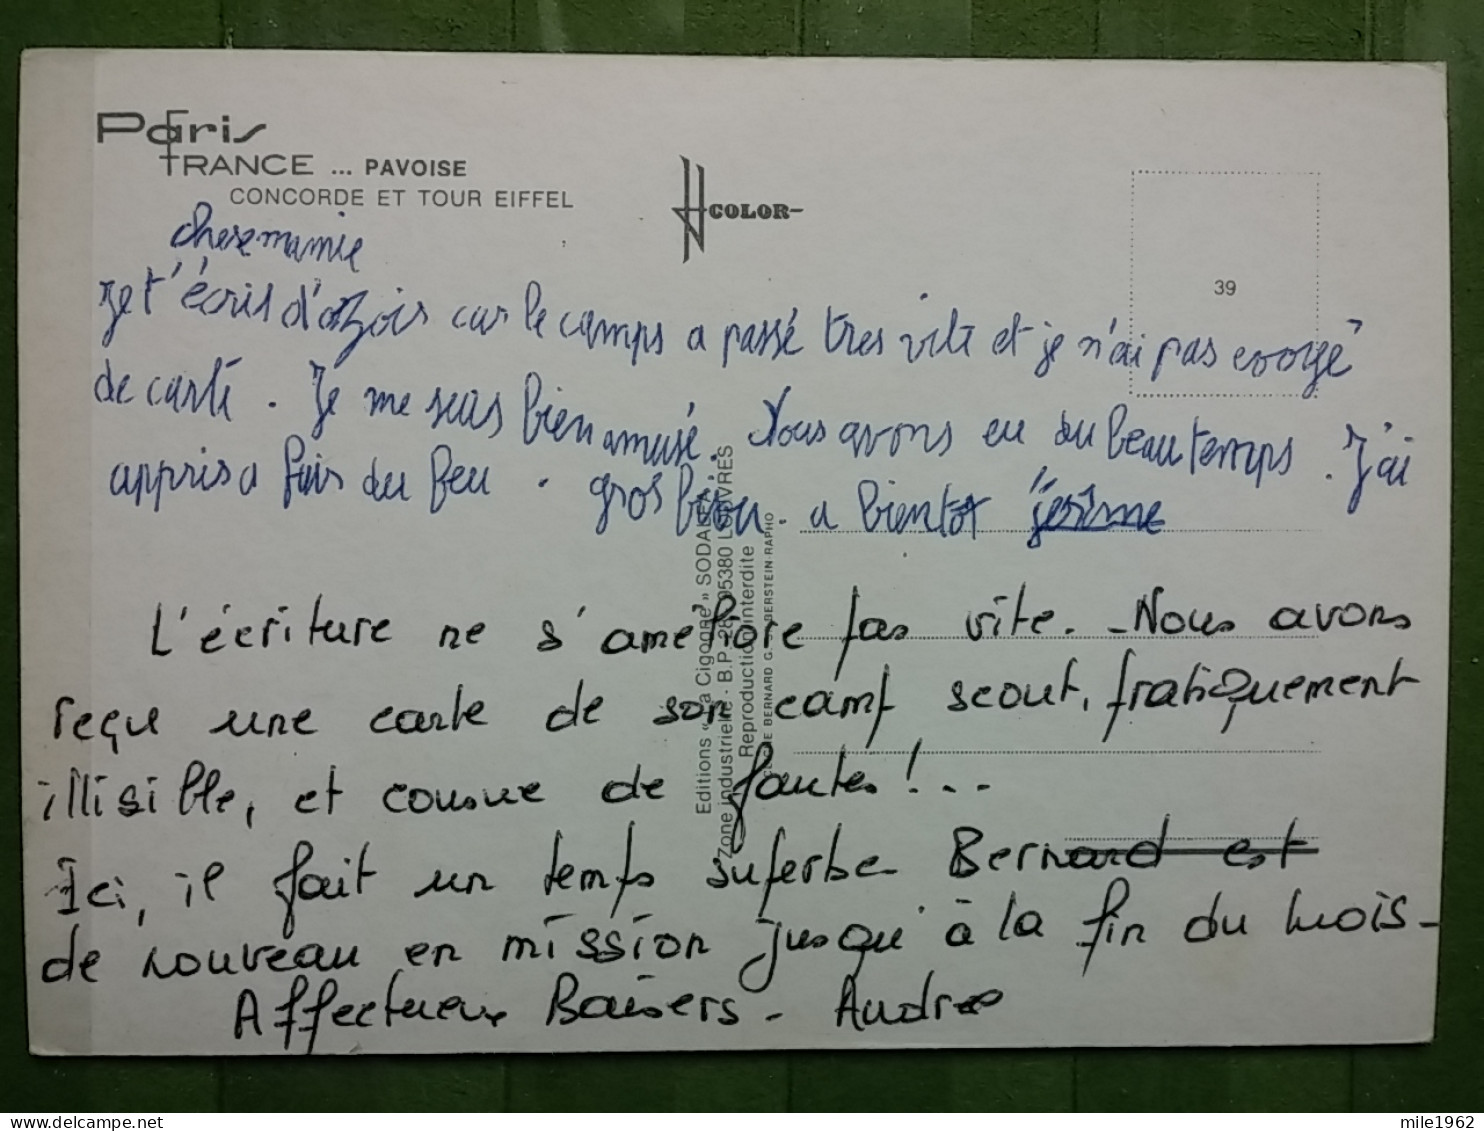 Paris
FRANCE ... PAVOISE
CONCORDE ET TOUR EIFFEL
COLOR
39
chere mamie
Je t'écris d'Arbois car le camps a passé tres vite et je n'ai pas
de carte. Je me suis bien amusé. Nous avons eu du beau temps. J'ai
appris a fair du feu. gros bisou. a bientot jerôme
L'écriture ne s'améliore pas vite. - Nous avons
reçu une carte de son camp scout, pratiquement
illisible, et cousue de fautes !...
Ici, il fait un temps superbe Bernard est
de nouveau en mission jusqu'à la fin du mois -
Affectueux Baisers - Andrée
Editions « La Cigogne » SODALFA
Zone industrielle - B.P. 95380 LOUVRES
Reproduction interdite
BERNARD G. SILBERSTEIN-RAPHO
mile1962